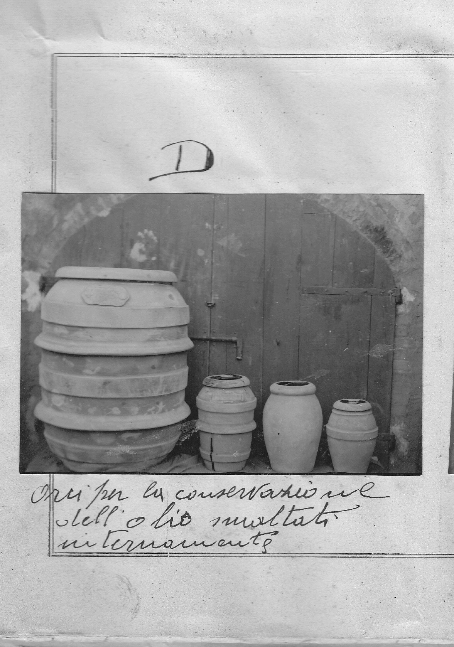 D
Orci per la conservazione
dell'olio smaltati
internamente